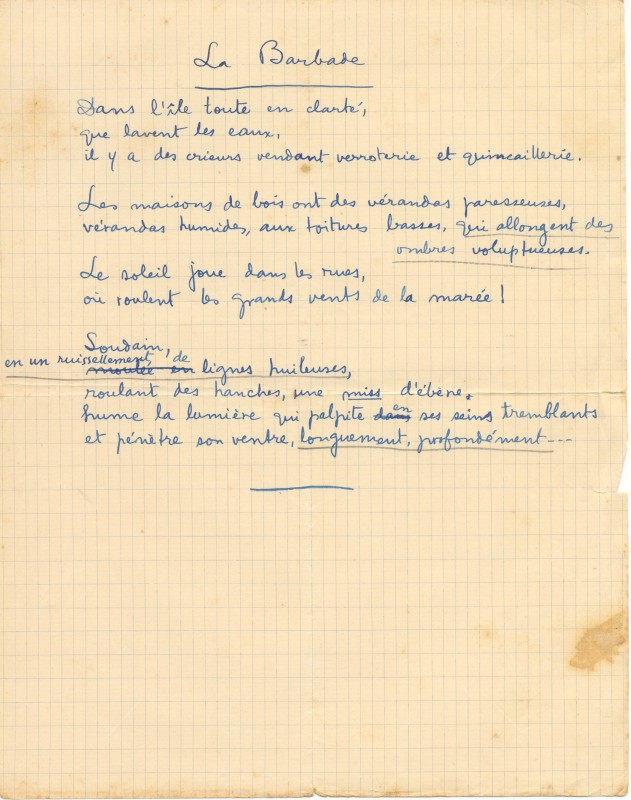 La Barbade
Dans l'île toute en clarté,
que lavent les eaux,
il y a des crieurs vendant verroterie et quincaillerie.
Les maisons de bois ont des vérandas paresseuses,
vérandas humides, aux toitures basses, qui allongent des
ombres voluptueuses.
Le soleil joue dans les rues,
où roulent les grands vents de la marée !
Soudain,
en un ruissellement, de
moulée en lignes huileuses,
roulant des hanches, une miss d'ébène,
hume la lumière qui palpite dans en ses seins tremblants
et pénètre son ventre, longuement, profondément---